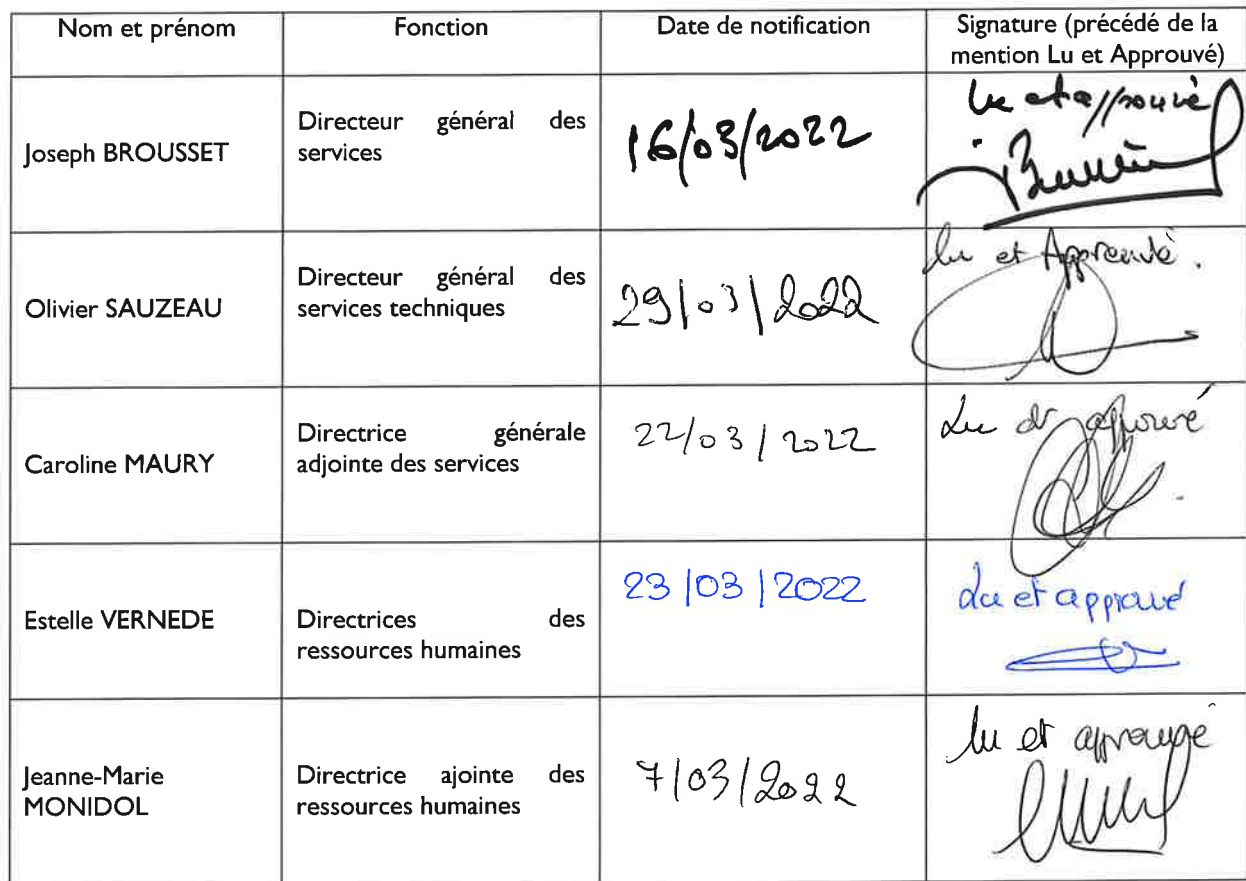 Nom et prénom
Fonction
Date de notification
Signature (précédé de la
mention Lu et Approuvé)
Joseph BROUSSET
Directeur général des
services
16/03/2022
Lu et approuvé
Olivier SAUZEAU
Directeur général des
services techniques
29/03/2022
lu et Approuvé.
Caroline MAURY
Directrice générale
adjointe des services
22/03/2022
Lu et approuvé
Estelle VERNEDE
Directrices des
ressources humaines
23/03/2022
Lu et approuvé
Jeanne-Marie
MONIDOL
Directrice ajointe des
ressources humaines
7/03/2022
lu et approuvé